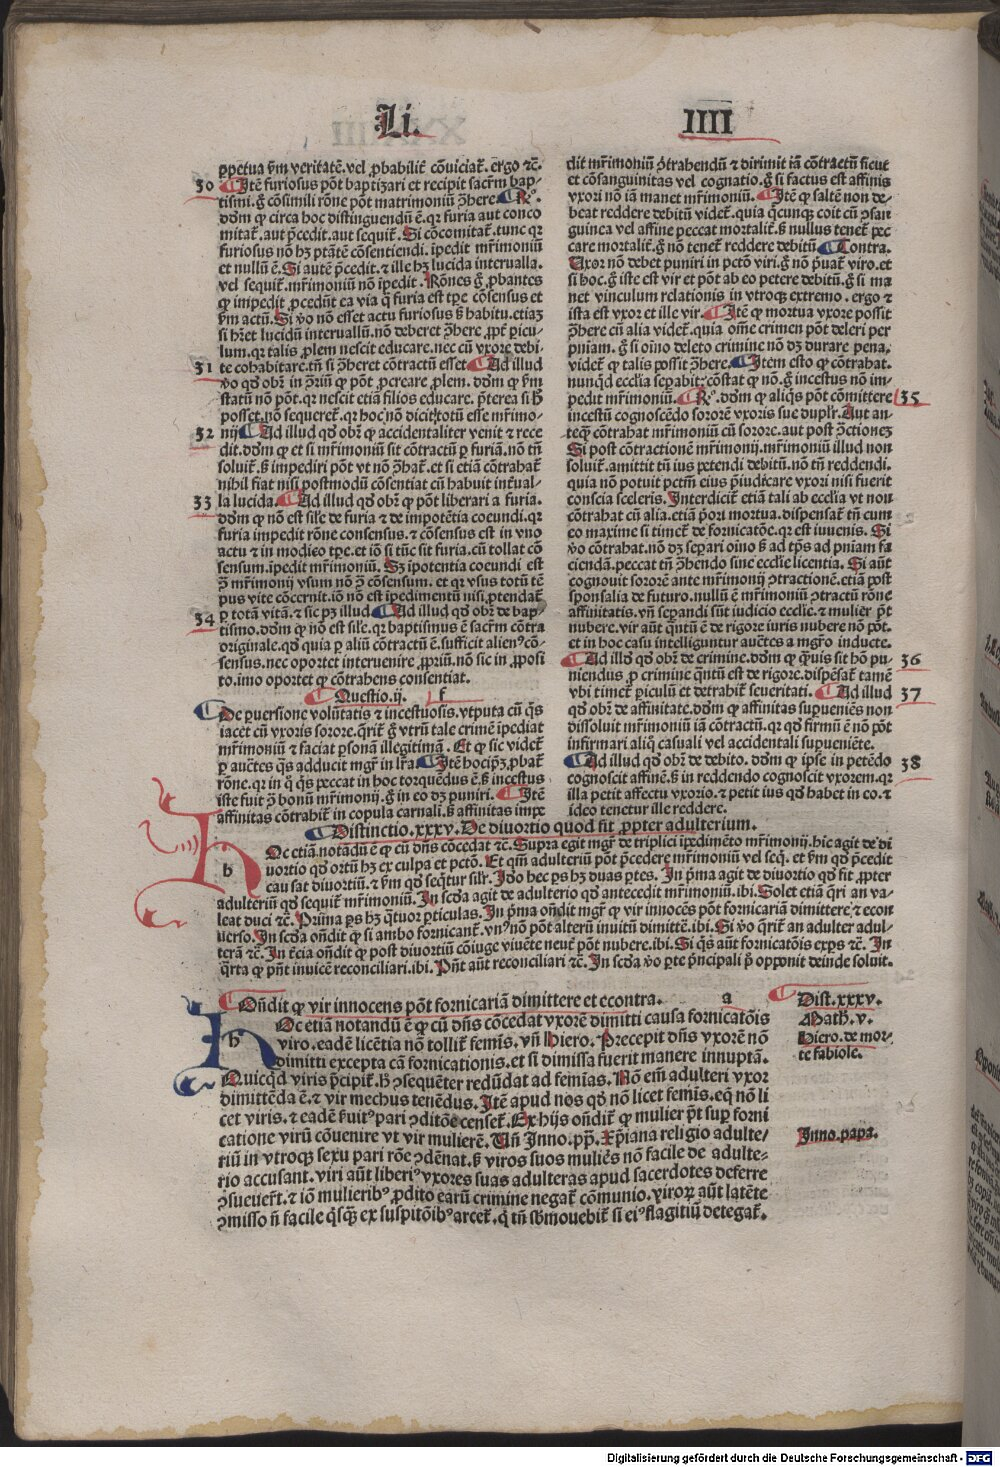 Li. IIII
ꝑpetua ẜm veritatē. vel ꝓbabilit᷑ cōuiciat᷑. ergo ⁊c̄.
30 Itē furiosus pōt baptizari et recipit sacr̄m bap-
tismi. ḡ cōsimili rōne pōt matrimoniū ꝯhere. Rº.
dd̄m ꝙ circa hoc distinguendū ē. qꝛ furia aut conco
mitat᷑. aut p̄cedit. aut sequit᷑. Si cōcomitat᷑. tunc qꝛ
furiosus nō hꝫ ptātē cōsentiendi. īpedit mr̄imoniū
et nullū ē. Si autē p̄cedit. ⁊ ille hꝫ lucida interualla.
vel sequit᷑. mr̄imoniū nō īpedit. Rōnes ḡ ꝓbantes
ꝙ impedit ꝓcedūt ea via q̄ furia est tꝑe cōsensus et
ẜm actū. Si v̄o nō esset actu furiosus ẜ habitu. etiaꝫ
si hr̄et lucidū interuallū. nō deberet ꝯhere. ꝓpt᷑ ꝑicu-
lum. qꝛ talis ꝓlem nescit educare. nec cū vxore debi-
31 te cohabitare. tn̄ si ꝯheret cōtractū esset. Ad illud
v̄o qd̄ obr̄ in ꝯriū ꝙ pōt ꝓcreare ꝓlem. dd̄m ꝙ ẜm
statū nō pōt. qꝛ nescit etiā filios educare. p̄terea si h̄
posset. nō sequeret᷑. qꝛ hoc nō dicit totū esse mr̄imo-
32 nij. Ad illud qd̄ obr̄ ꝙ accidentaliter venit ⁊ rece
dit. dd̄m ꝙ et si mr̄imoniū sit cōtractū ꝑ furiā. nō tn̄
soluit᷑. ẜ impediri pōt vt nō ꝯhat᷑. et si etiā cōtrahat᷑
nihil fiat nisi postmodū cōsentiat cū habuit int᷑ual-
33 la lucida. Ad illud qd̄ obr̄ ꝙ pōt liberari a furia.
dd̄m ꝙ nō est sil̄e de furia ⁊ de impotētia coeundi. qꝛ
furia impedit rōne consensus. ⁊ cōsensus est in vno
actu ⁊ in modico tꝑe. et iō si tūc sit furia. cū tollat cō
sensum. īpedit mr̄imoniū. Sꝫ īpotentia coeundi est
ꝯ mr̄imonij vsum nō ꝯ cōsensum. et qꝛ vsus totū tē
pus vite cōcernit. iō nō est īpedimentū nisi ꝓtendat᷑
ꝑ totā vitā. ⁊ sic pꝫ illud. Ad illud qd̄ obr̄ de bap-
34 tismo. dd̄m ꝙ nō est sil̄e. qꝛ baptismus ē sacr̄m cōtra
originale. qd̄ quia ꝑ aliū cōtractū ē. sufficit alienꝰ cō-
sensus. nec oportet interuenire ꝓpriū. nō sic in ꝓposi
to. imo oportet ꝙ cōtrahens consentiat.
Questio. ij. f
De ꝑuersione volūtatis ⁊ incestuosis. vtputa cū q̄s
iacet cū vxoris sorore. q̄rit᷑ ḡ vtrū tale crimē īpediat
mr̄imoniū ⁊ faciat ꝑsonā illegitimā. Et ꝙ sic videt᷑
ꝑ auc̄tes q̄s adducit mgr̄ in lr̄a. Itē hoc ip̄ꝫ ꝓbat᷑
rōne. qꝛ in q̊ q̄s peccat in hoc torquēdus ē. ẜ incestus
iste fuit ꝯ bonū mr̄imonij. ḡ in eo dꝫ puniri. Itē
affinitas cōtrahit᷑ in copula carnali. ẜ affinitas impe
dit mr̄imoniū ꝯtrahendū ⁊ dirimit iā cōtractū sicut
et cōsanguinitas vel cognatio. ḡ si factus est affinis
vxori nō iā manet mr̄imoniū. Itē ꝙ saltē non de-
beat reddere debitū videt᷑. quia q̄cunqꝫ coit cū ꝯsan
guinea vel affine peccat mortalit᷑. ẜ nullus tenet᷑ pec
care mortalit᷑. ḡ nō tenet᷑ reddere debitū. Contra.
Uxor nō debet puniri in pctō viri. ḡ nō p̄uat᷑ viro. et
si hoc. ḡ iste est vir et pōt ab eo petere debitū. ḡ si ma
net vinculum relationis in vtroqꝫ extremo. ergo ⁊
ista est vxor et ille vir. Itē ꝙ mortua vxore possit
ꝯhere cū alia videt᷑. quia om̄e crimen pōt deleri per
pn̄iam. ḡ si oīno deleto crimine nō dꝫ durare pena.
videt᷑ ꝙ talis possit ꝯhere. Item esto ꝙ cōtrahat.
nunqd ecclīa seꝑabit. cōstat ꝙ nō. ḡ incestus nō im-
pedit mr̄imoniū. Rº. dd̄m ꝙ aliq̄s pōt cōmittere 35
incestū cognoscēdo sororē vxoris sue duplr̄. Aut an-
teqꝫ cōtrahat mr̄imoniū cū sorore. aut post ꝯctionez
Si post cōtractionē mr̄imonij. mr̄imoniū illud non
soluit᷑. amittit tn̄ ius petendi debitū. nō tn̄ reddendi.
quia nō potuit pctm̄ eius p̄iudicare vxori nisi fuerit
conscia sceleris. Interdicit᷑ etiā tali ab ecclīa vt non
cōtrahat cū alia. etiā p̄ori mortua. dispensat᷑ tn̄ cum
eo maxime si timet᷑ de fornicatōe. qꝛ est iuuenis. Si
v̄o cōtrahat. nō dꝫ seꝑari oīno ẜ ad tp̄s ad pn̄iam fa
ciendā. peccat tn̄ ꝯhendo sine ecclīe licentia. Si aūt
cognouit sororē ante mr̄imonij ꝯtractionē. etiā post
sponsalia de futuro. nullū ē mr̄imoniū ꝯtractū rōne
affinitatis. vn̄ seꝑandi sūt iudicio ecclīe. ⁊ mulier p̄t
nubere. vir aūt q̄ntū ē de rigore iuris nubere nō pōt.
et in hoc casu intelliguntur auc̄tes a mgr̄o inducte.
Ad illd̄ qd̄ obr̄ de crimine. dd̄m ꝙ q̄uis sit hō pu- 36
niendus ꝓ crimine q̄ntū est de rigore. dispēsat᷑ tamē
vbi timet᷑ ꝑiculū et detrahit᷑ seueritati. Ad illud 37
qd̄ obr̄ de affinitate. dd̄m ꝙ affinitas suꝑueniēs non
dissoluit mr̄imoniū iā cōtractū. qꝛ qd̄ firmū ē nō pōt
infirmari aliq̄ casuali vel accidentali suꝑueniēte.
Ad illud qd̄ obr̄ de debito. dd̄m ꝙ ip̄se in petēdo 38
cognoscit affinē. ẜ in reddendo cognoscit vxorem. qꝛ
illa petit affectu vxorio. ⁊ petit ius qd̄ habet in eo. ⁊
ideo tenetur ille reddere.
Distinctio. xxxv. De diuortio quod fit ꝓpter adulterium.
b Oc etiā notādū ē ꝙ cū dn̄s cōcedat ⁊c̄. Supra egit mgr̄ de triplici īpedimēto mr̄imonij. hic agit de di
uortio qd̄ ortū hꝫ ex culpa et pctō. Et qm̄ adulteriū pōt p̄cedere mr̄imoniū vel seq̄. et ẜm qd̄ p̄cedit
causat diuortiū. ⁊ ẜm qd̄ seq̄tur silr̄. Ido hec ꝑs hꝫ duas ꝑtes. In p̄ma agit de diuortio qd̄ fit ꝓpter
adulteriū qd̄ sequit᷑ mr̄imoniū. In scd̄a agit de adulterio qd̄ antecedit mr̄imoniū. ibi. Solet etiā q̄ri an va-
leat duci ⁊c̄. Prima ꝑs hꝫ q̄tuor ꝑticulas. In p̄ma ondit mgr̄ ꝙ vir innocēs pōt fornicariā dimittere, ⁊ econ
uerso. In scd̄a ondit ꝙ si ambo fornicant᷑. vnꝰ nō pōt alterū inuitū dimittē. ibi. Si v̄o q̄rit᷑ an adulter adul-
terā ⁊c̄. In t̄cia ondit ꝙ post diuortiū cōiuge viuēte neut᷑ pōt nubere. ibi. Si q̄s aūt fornicatōis exp̄s ⁊c̄. In
q̄rta ꝙ pn̄t inuicē reconciliari. ibi. Pn̄t aūt reconciliari ⁊c̄. In scd̄a v̄o ꝑte p̄ncipali p̄ opponit deinde soluit.
Ondit ꝙ vir innocens pōt fornicariā dimittere et econtra. a
Dist. xxxv.
h Oc etiā notandū ē ꝙ cū dn̄s cōcedat vxorē dimitti causa fornicatōis
Math. v.
viro. eadē licētia nō tollit᷑ femīs. vn̄ Hiero. Precepit dn̄s vxorē nō
Hiero. de mor-
dimitti excepta cā fornicationis. et si dimissa fuerit manere innuptā.
te fabiole.
Quicqd viris p̄cipit᷑. h̄ ꝯsequēter redūdat ad femīas. Nō em̄ adulteri vxor
dimittēda ē. ⁊ vir mechus tenēdus. Itē apud nos qd̄ nō licet femīs. eq̄ nō li
cet viris. ⁊ eadē ẜuitꝰ pari ꝯditōe censet᷑. Ex hijs ondit᷑ ꝙ mulier p̄t suꝑ forni
catione virū cōuenire vt vir mulierē. Un̄ Inno. pp̄. Xp̄iana religio adulte-
Inno. papa.
riū in vtroqꝫ sexu pari rōe ꝯdēnat. ẜ viros suos mulies nō facile de adulte-
rio accusant. viri aūt liberiꝰ vxores suas adulteras apud sacerdotes deferre
ꝯsueuer̄t. ⁊ iō mulieribꝰ ꝓdito earū crimine negat᷑ cōmunio. viroꝝ aūt latēte
ꝯmisso n̄ facile q̄sqꝫ ex suspitōibꝰ arcet᷑. q̄ tn̄ sb̄mouebit᷑ si eiꝰ flagitiū detegat᷑.
Digitalisierung gefördert durch die Deutsche Forschungsgemeinschaft - DFG